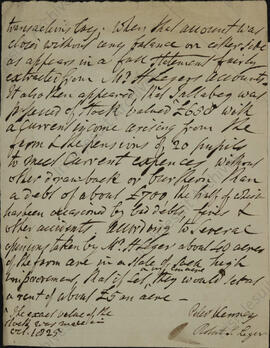 transactions &c. When that account was
closed without any balance on either side
as appears in a full statement fairly
extracted from Mr St Legers accounts.
It also then appeared, that Tullabeg was
possessed of stock valued £650 with
a current income arising from the
farm & the pensions of 20 pupils
to meet current expences without
other drawback or burthen than
a debt of about £700, the half of which
has been occasioned by bad debts,
other accounts. According to several
opinions taken by Mr St Leger about 60 acres
of the farm are in a state of such high
improvement, that if let, they would
a rent of about £5 an acre —
The exact value of the
stock was made in
Oct. 1825.
Peter Kenney
Robert St Leger